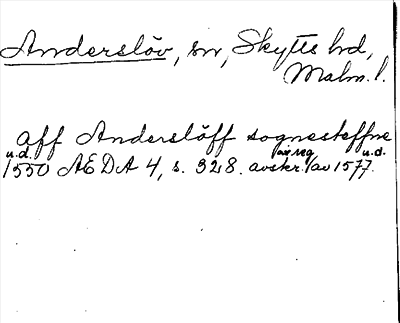 Anderslöv, sn, Skytts hd,
Malm. l.
aff Anderslöff sognesteffne
u.d. av reg u.d.
1550 AEDA 4, s. 328. avskr. av 1577.